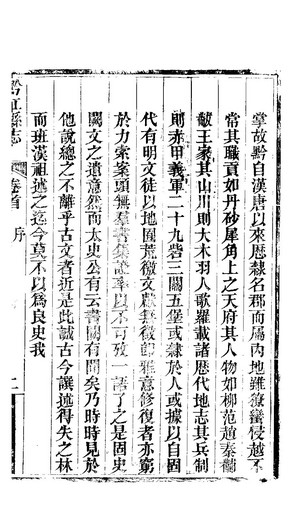 掌故黔自漢唐以來歷隸名郡而屬內地雖獠蠻侵越不
常其職貢如丹砂犀角上之天府其人物如柳范趙秦蘭
敵王家其山川則大木羽人歌羅載諸歷代地志其兵制
則赤甲義軍二十九砦三關五堡或隸於人或據以自固
代有明文徒以地固荒徼文獻無徵即雅意修復者亦窮
於力索案頭無羣書集證率以不可攷一語了之是固史
闕文之遺意然而太史公有云書闕有間矣乃時時見於
他說總之不離乎古文者近是此誠古今譔述得失之林
而班漢祖述之迄今莫不以為良史我
黔江縣志
卷首
序
二